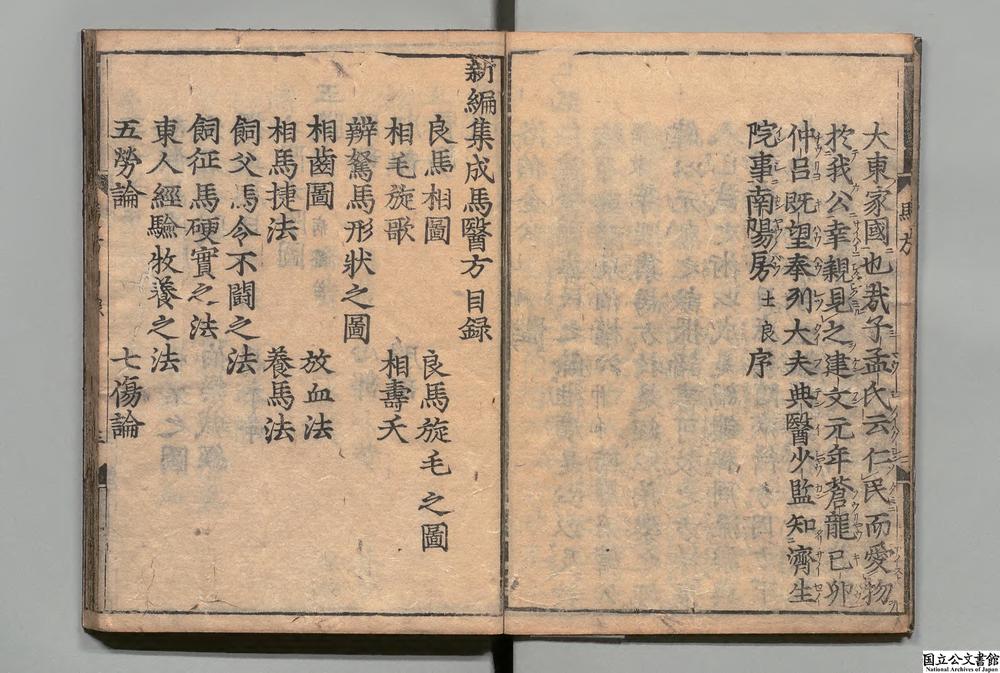 大東家國也哉子孟氏云仁民而愛物
於我公幸親見之建文元年蒼龍己卯
仲呂既望奉列大夫典醫少監知濟生
院事南陽房士良序
馬方
新編集成馬醫方目録
良馬相圖 良馬旋毛之圖
相毛旋歌 相壽夭
辨駑馬形狀之圖
相齒圖 放血法
相馬捷法 養馬法
飼父馬令不鬪之法
飼征馬硬實之法
東人經驗牧養之法
五勞論 七傷論
国立公文書館
National Archives of Japan